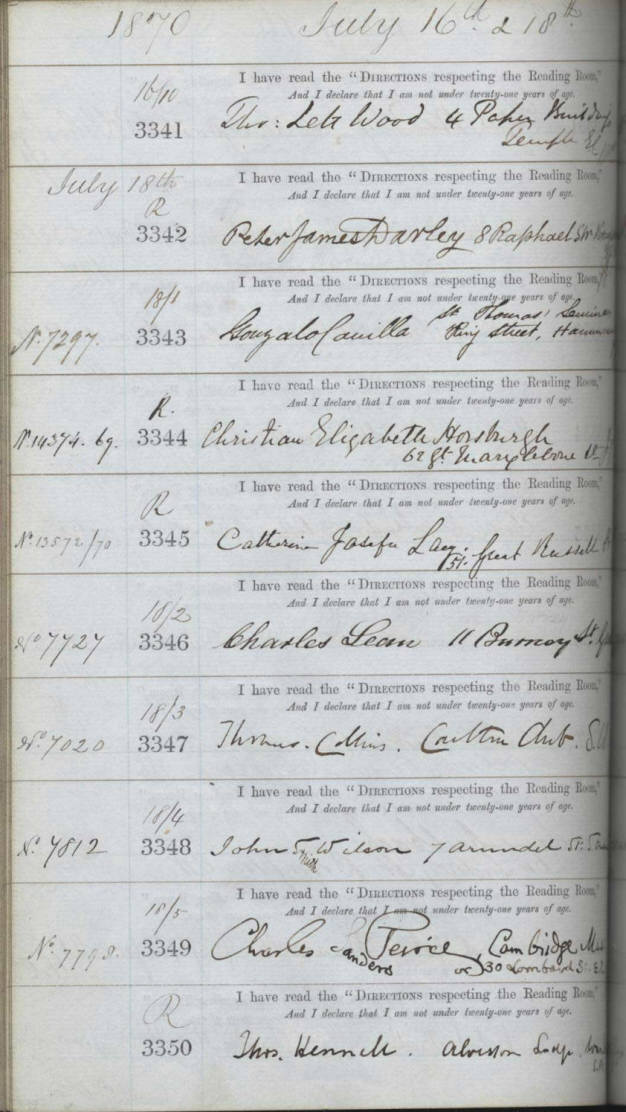 1870 July 16th & 18th
I have read the "DIRECTIONS respecting the Reading Room,"
And I declare that I am not under twenty-one years of age.
16/10
3341 Thos: Letts Wood 4 Paper Buildings
Temple EC
I have read the "DIRECTIONS respecting the Reading Room,"
July 18th
And I declare that I am not under twenty-one years of age.
R
3342 Peter James Darley 8 Raphael St
I have read the "DIRECTIONS respecting the Reading Room,"
And I declare that I am not under twenty-one years of age.
18/1
St Thomas' Semin
No. 7297. 3343 Gonzalo Canilla King Street, Hamm
I have read the "DIRECTIONS respecting the Reading Room,"
And I declare that I am not under twenty-one years of age.
R.
No 14374. 69. 3344 Christian Elizabeth Horsburgh
62 Gt. Marylebone
I have read the "DIRECTIONS respecting the Reading Room,"
And I declare that I am not under twenty-one years of age.
R
No. 13572/70 3345 Catherine Josefa Lacy. 51. Great Russell
I have read the "DIRECTIONS respecting the Reading Room,"
And I declare that I am not under twenty-one years of age.
18/2
No 7727 3346 Charles Lean 11 Burney St.
I have read the "DIRECTIONS respecting the Reading Room,"
And I declare that I am not under twenty-one years of age.
18/3
No. 7020 3347 Thomas. Collins. Carlton Club. S.W
I have read the "DIRECTIONS respecting the Reading Room,"
And I declare that I am not under twenty-one years of age.
18/4
No. 7812 3348 John Smith Wilson 7 Arundel St:
I have read the "DIRECTIONS respecting the Reading Room,"
And I declare that I am not under twenty-one years of age.
18/5
No. 7798. 3349 Charles Sanders Peirce, Cambridge
or 30 Lombard St. E.C
I have read the "DIRECTIONS respecting the Reading Room,"
And I declare that I am not under twenty-one years of age.
R
3350 Thos. Hennell. Alveston Lodge